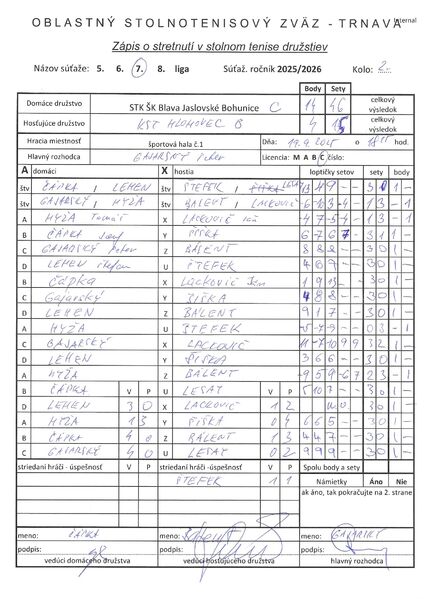 Internal
OBLASTNÝ STOLNOTENISOVÝ ZVÄZ - TRNAVA
Zápis o stretnutí v stolnom tenise družstiev
Názov súťaže: 5. 6. 7. 8. liga Súťaž. ročník 2025/2026 Kolo: 2.
Body Sety
Domáce družstvo STK ŠK Blava Jaslovské Bohunice C 14 46 celkový výsledok
Hosťujúce družstvo KST HLOHOVEC B 4 15 celkový výsledok
Hracia miestnosť športová hala č.1 Dňa: 19.9.2025 o
Hlavný rozhodca GAJARSKÝ Peter Licencia: M A B C číslo:
A domáci X hostia loptičky setov sety body
štv ČÁPKA / LEHEN štv ŠTEFEK /
štv GAJARSKÝ / HYŽA štv BALENT / LACKOVIČ
A HYŽA Tomáš X LACKOVIČ
B ČÁPKA Y ŠIŠKA 6 7 6 7 3 1 1 -
C GAJARSKÝ Peter Z BALENT 8 8 8 - - 3 0 1 -
D LEHEN Štefan U ŠTEFEK 4 6 9 - - 3 0 1 -
B ČÁPKA X LACKOVIČ Ján 3 0 1 -
C GAJARSKÝ Y ŠIŠKA 4 8 8 - - 3 0 1 -
D LEHEN Z BALENT 9 1 7 - - 3 0 1 -
A HYŽA U ŠTEFEK -5 -7 -9 - - 0 3 - 1
C GAJARSKÝ X LACKOVIČ 11 -7 10 9 9 3 2 1 -
D LEHEN Y ŠIŠKA 3 6 6 - - 3 0 1 -
A HYŽA Z BALENT -9 5 9 -6 -7 2 3 - 1
B ČÁPKA V P U LESAY V P 5 10 7 - - 3 0 1 -
D LEHEN 3 0 X LACKOVIČ 1 2 w.o. 3 0 1 -
A HYŽA 1 3 Y ŠIŠKA 0 4 6 6 5 - - 3 0 1 -
B ČÁPKA 4 0 Z BALENT 1 3 4 4 7 - - 3 0 1 -
C GAJARSKÝ 4 0 U LESAY 0 2 9 9 9 - - 3 0 1 -
striedaní hráči - úspešnosť striedaní hráči -úspešnosť Spolu body a sety
ŠTEFEK 1 1 Námietky Áno Nie
ak áno, tak pokračujte na 2. strane
meno: ČÁPKA meno: meno: GAJARSKÝ
podpis: podpis: podpis:
vedúci domáceho družstva vedúci hosťujúceho družstva hlavný rozhodca